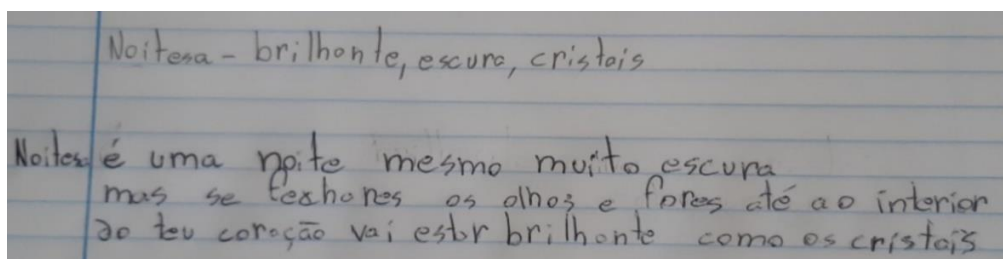 Noitesa - brilhante, escura, cristais
Noitesa é uma noite mesmo muito escura
mas se fexhares os olhos e fores até ao interior
do teu coração vai estar brilhante como os cristais